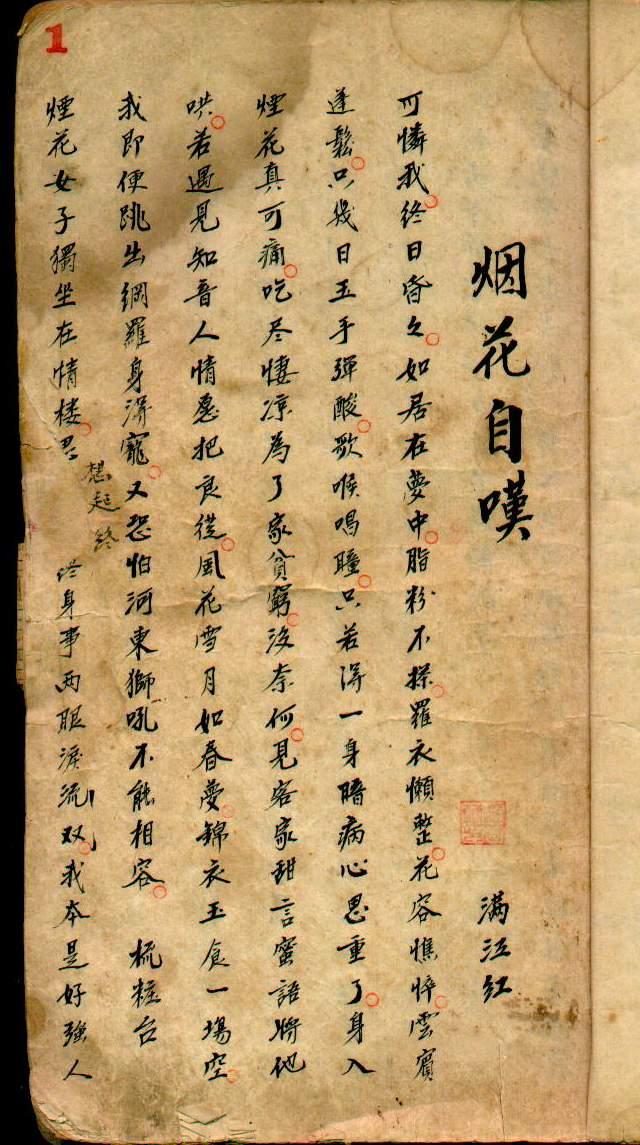 1
烟花自嘆
满江红
可憐我終日昏々如居在夢中脂粉不搽羅衣懶整花容憔悴雲賓
蓬鬆只幾日玉手彈酸歌喉唱瘇只若淂一身暗病心思重了身入
煙花真可痛吃尽悽凉為了家貧窮没奈何見客家甜言蜜語將他
哄若遇見知音人情愿把良從風花雪月如春夢錦衣玉食一場空
我即便跳出網羅身淂寵又恐怕河東獅吼不能相容 梳粧台
煙花女子獨坐在情楼
想起終
終身事两眼淚流双我本是好強人